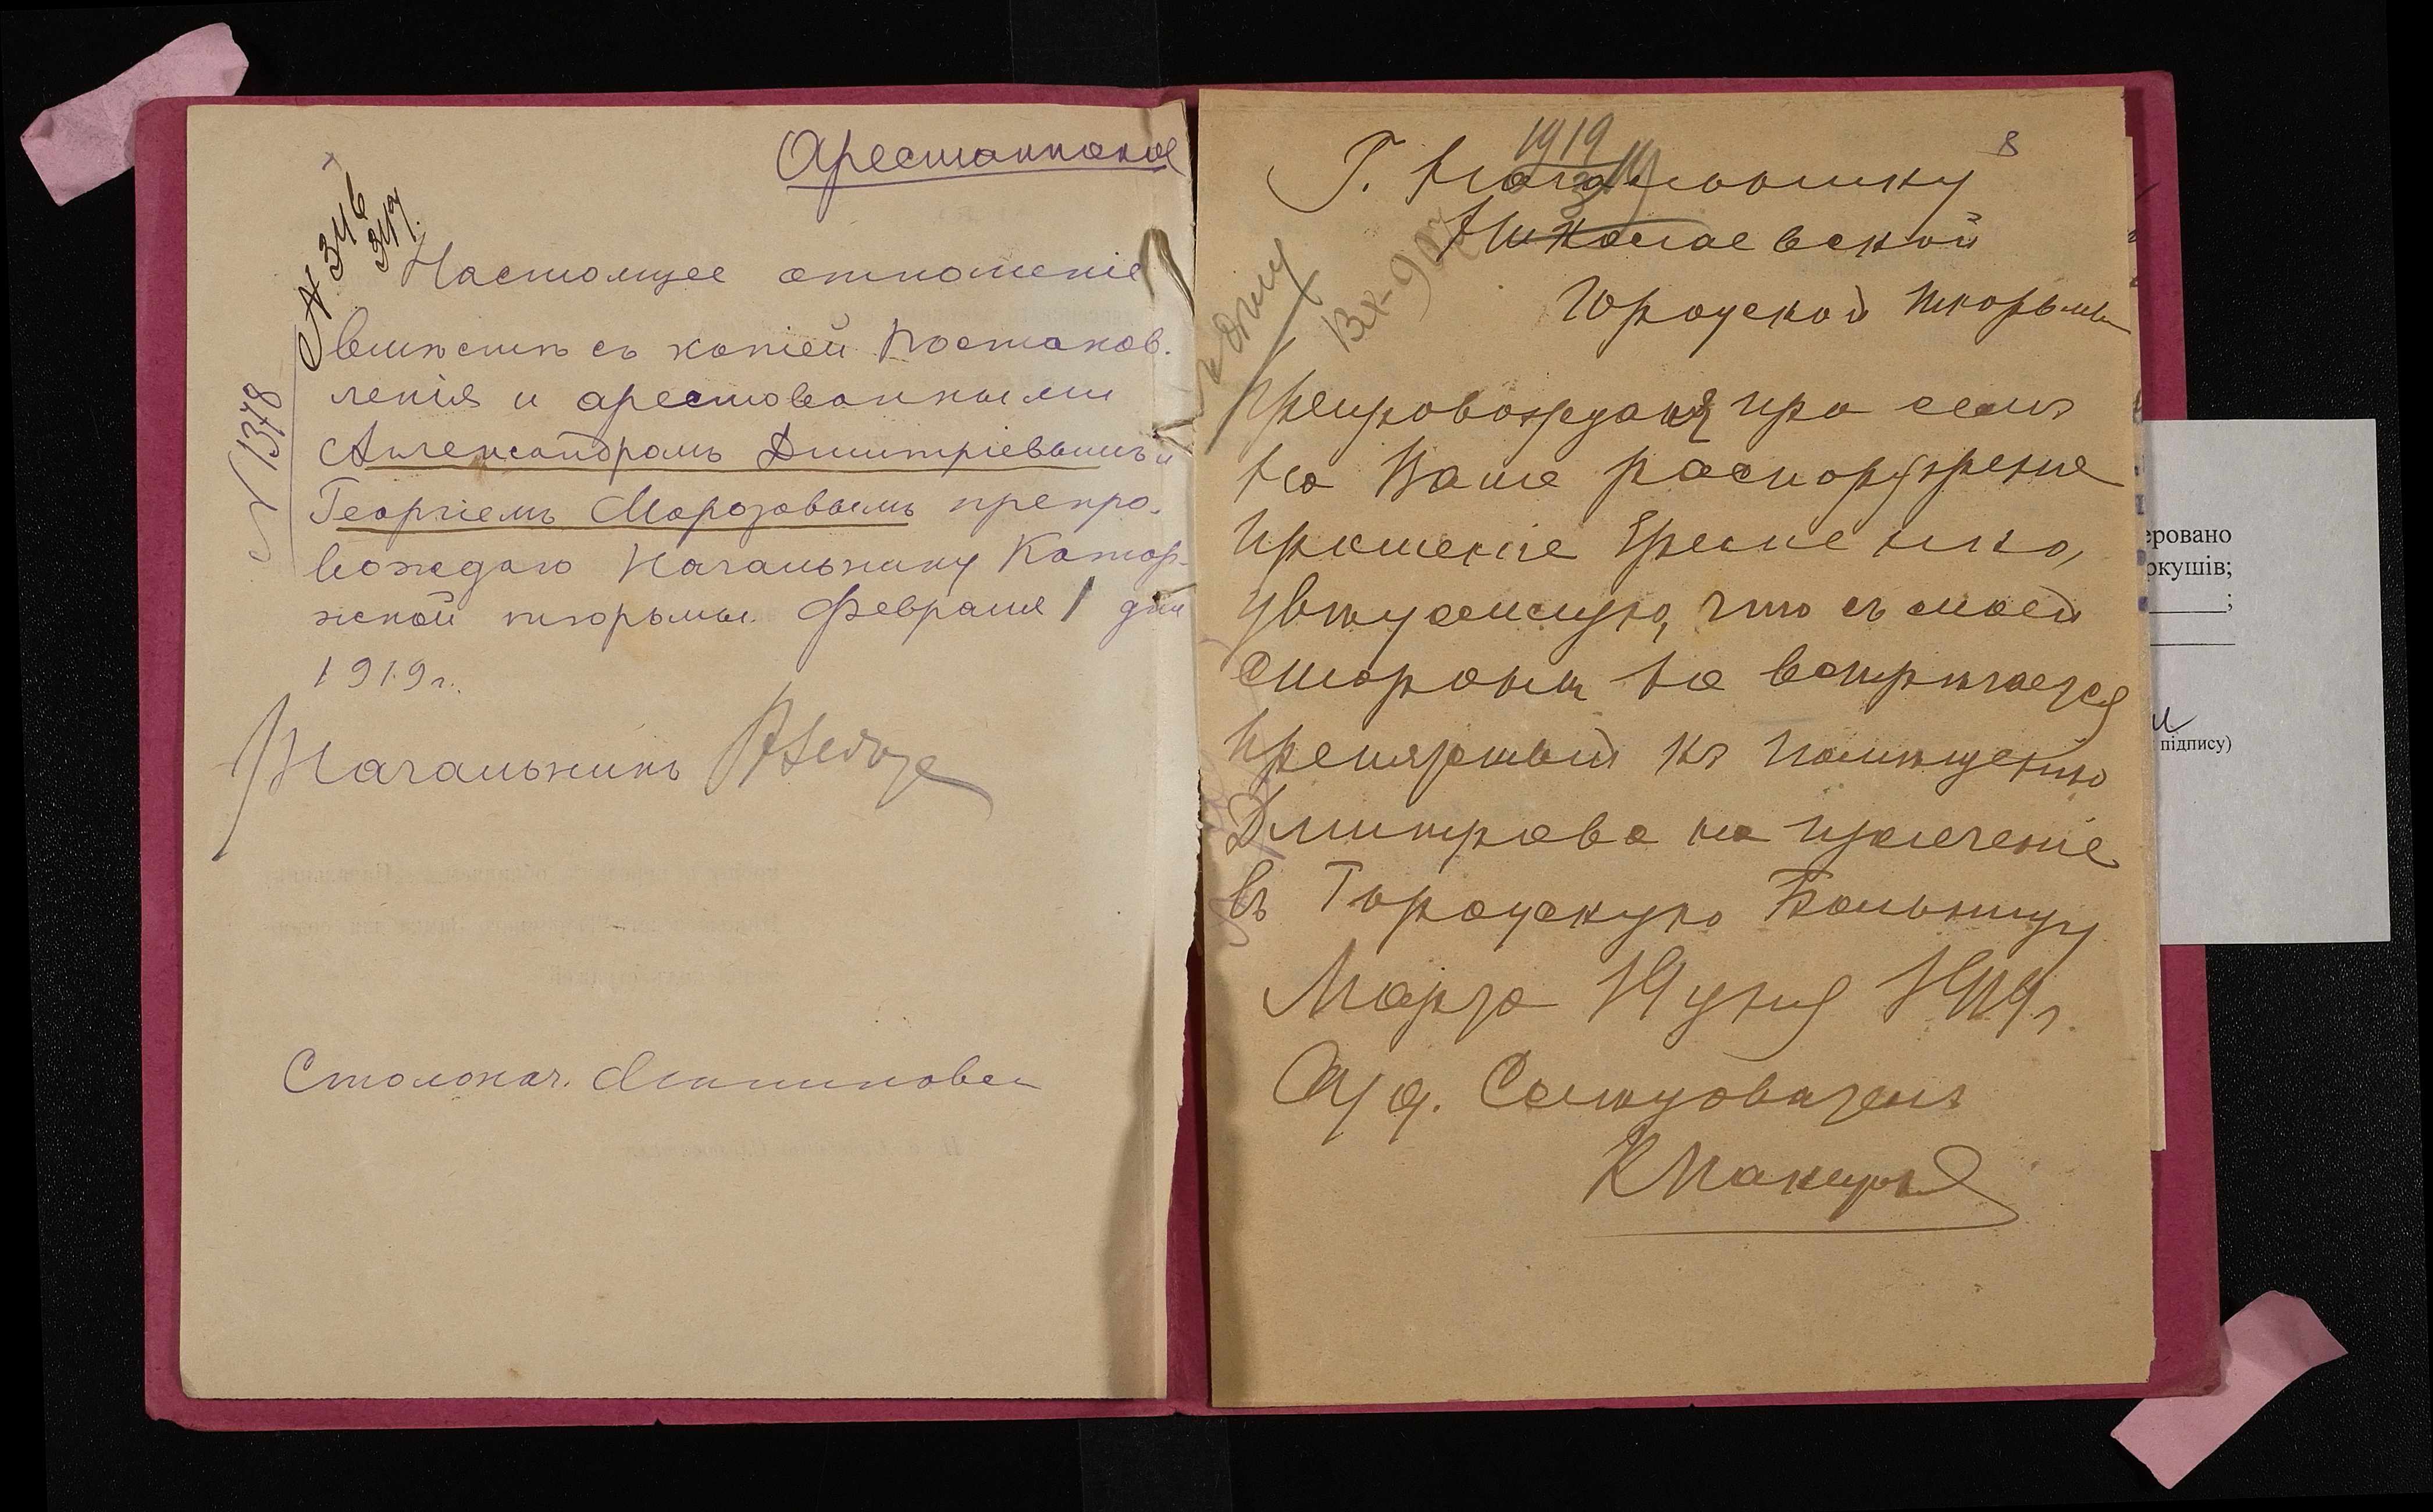 Арестантское
№ 346
347.
№ 1378
Настоящее отношеніе
вмѣстѣ съ копіей постанов-
ленія и арестованными
Александромъ Дмитріевымъ и
Георгіемъ Морозовымъ препро-
вождаю Начальнику Катор-
жной тюрьмы. Февраля 1 дня
1919 г.
Начальникъ
Столонач.
8
1919
Г. Начальнику
Николаевской
Городской тюрьмы
Препровождая при семъ
на Ваше распоряженіе
прошеніе
увѣдомляю, что съ моей
стороны не встрѣчается
препятствій къ помѣщенію
Дмитрева на излеченіе
въ Городскую Больницу
Марта 14 дня 1919 г.
И. д. Слѣдователя
еровано
ркушів;
;
підпису)